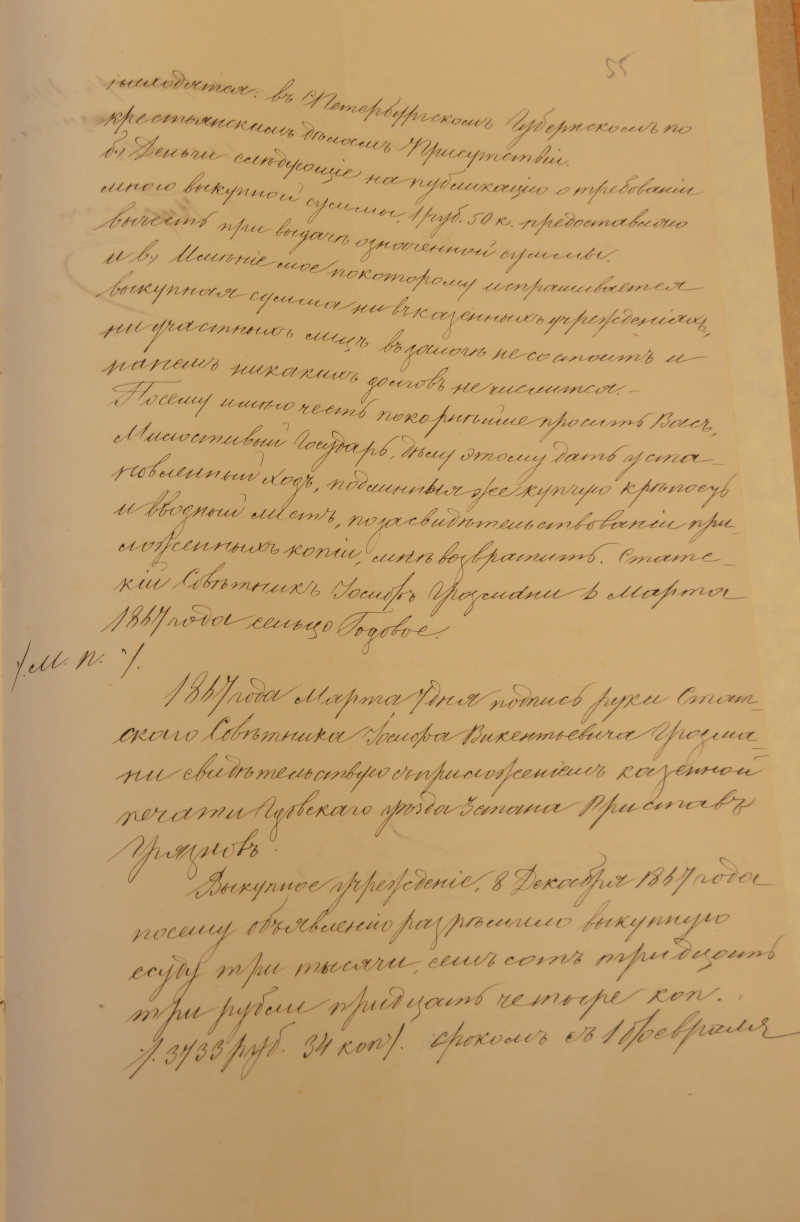 55
находятся. въ С Петербургскомъ Губернскомъ по
крестьянскимъ дѣламъ Присутствіи.
б, Деньги слѣдующіе на публикацію о требованіи
мною выкупной суммы. 1 руб. 50 к. предоставляю
вычесть при выдачѣ означенной суммы.
и в, Имѣніе мое покоторому испрашивается
выкупная сумма ни въ казенныхъ учрежденіяхъ,
ни участныхъ лицъ въ залогѣ не состоитъ и
нанемъ никакихъ долговъ не числится. –
Посему имѣю честь покорнѣйше просить Васъ,
Милостивый Государь, дѣлу этому дать уста–
новленный ходъ, подлинныя же купчую крѣпость
и вводный листъ, позасвидѣтельствованіи при–
ложенныхъ копій, мнѣ возвратить. Статс–
кій Совѣтникъ Іосифъ Грозмани Марта
1867 года сельцо Годовое.
/. М. П. /.
1867 года Марта 7 дня подпись руки Стат–
скаго Совѣтника Іосифа Викентьевича Грозма–
ни свидѣтельствую съ приложеніемъ казенной
печати Гдовскаго уѣзда 3 стана Приставъ
Грязновъ.
Выкупное учрежденіе, 8 Декабря 1867 года
посему объявленію разрѣшило выкупную
ссуду три тысячи, семьсотъ тридцать
три рубли тридцать четыре коп.
/. 3733 руб. 34 коп /. срокомъ съ 1 Февраля